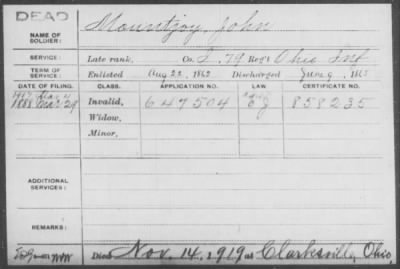 DEAD
NAME OF SOLDIER: Mountjoy, John
SERVICE: Late rank, Co. I. 79 Reg't Ohio Inf
TERM OF SERVICE: Enlisted Aug 22, 1862 Discharged June 9, 1865
DATE OF FILING. CLASS. APPLICATION NO. LAW. CERTIFICATE NO.
1888 Mar 29 Invalid, 647504 858235
Widow,
Minor,
ADDITIONAL SERVICES:
REMARKS:
Died Nov. 14, 1919 at Clarksville, Ohio,